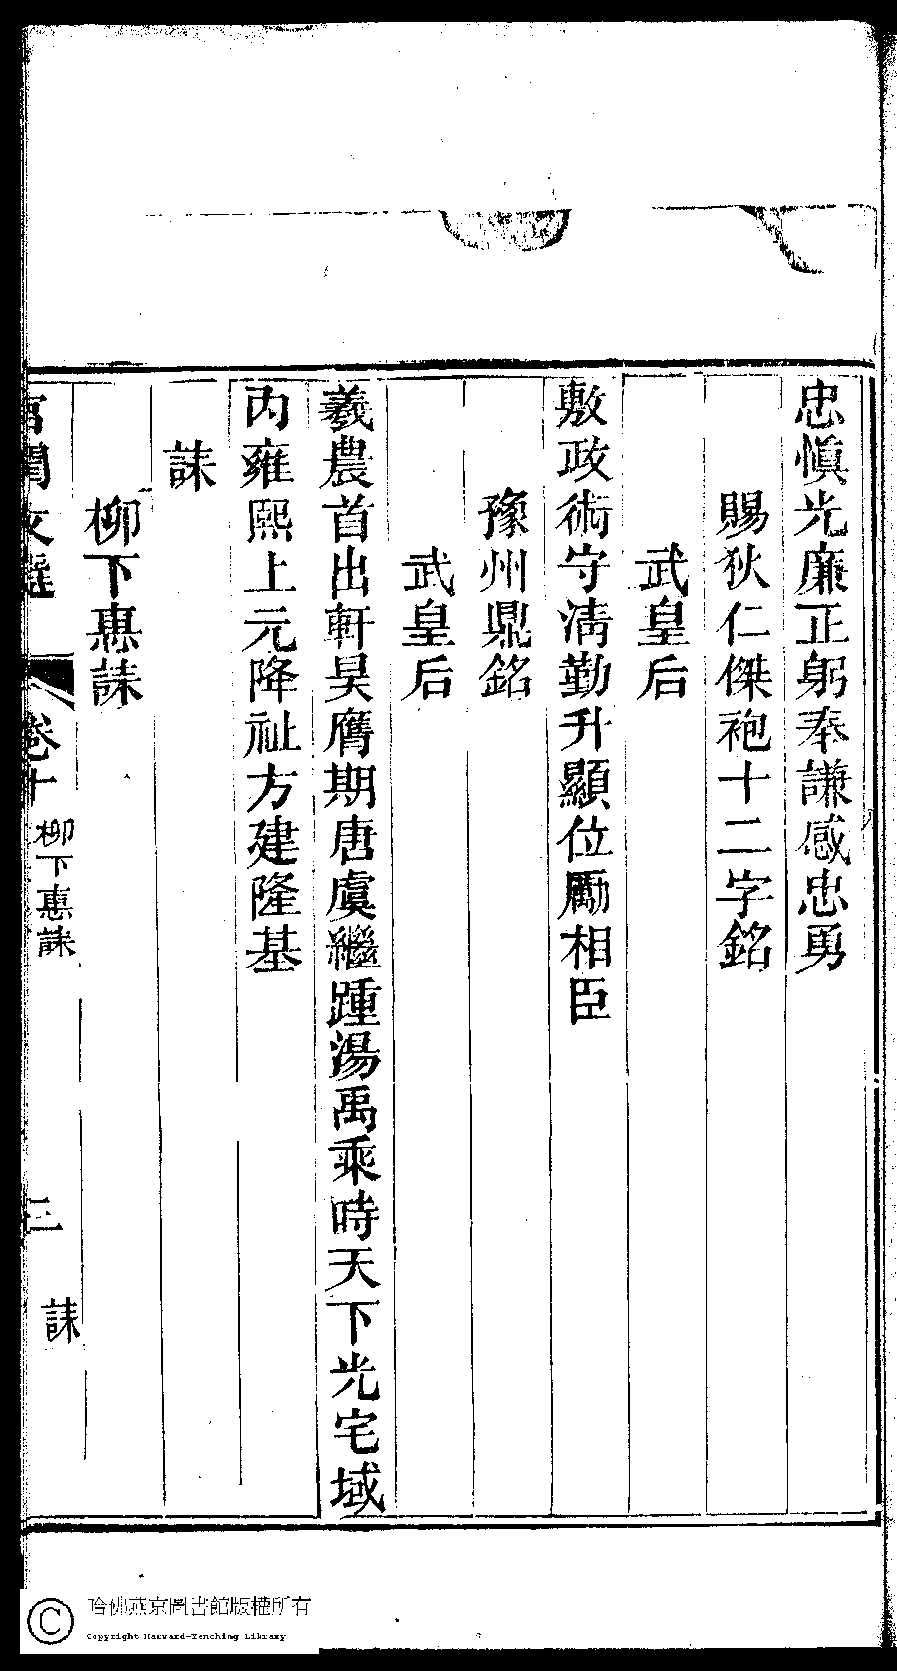 忠慎光廉正躬奉謙感忠勇
賜狄仁傑袍十二字銘
武皇后
敷政術守清勤升顯位勵相臣
豫州鼎銘
武皇后
羲農首出軒昊膺期唐虞繼踵湯禹乘時天下光宅域
內雍熙上元降祉方建隆基
誄
柳下惠誄
宮閨文選
卷十
柳下惠誄
三
誄
哈佛燕京圖書館版權所有
Copyright Harvard-Yenching Library